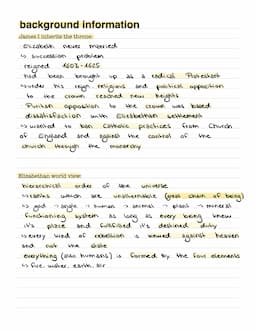 background information
James I inherits the throne:
- Elizabeth never married
↳ succession problem
- reigned 1603-1625
- had been brought up as a radical Protestant
↳ under his reign, religious and political opposition
to the crown reached new heights
- Puritan opposition to the crown was based
dissatisfaction with Elizabethan settlement
↳ wanted to ban Catholic practices from Church
of England and against the control of the
church through the monarchy
Elizabethan world view:
- hierarchical order of the universe
↳ ranks which are unalterable (great chain of being)
↳ god → angle → human → animal → plant → mineral
- functioning system as long as every being knew
it's place and fulfilled it's destined duty
↳ every kind of rebellion is viewed against heaven
and not the state
- everything (also humans) is formed by the four elements
↳ fire, water, earth, air